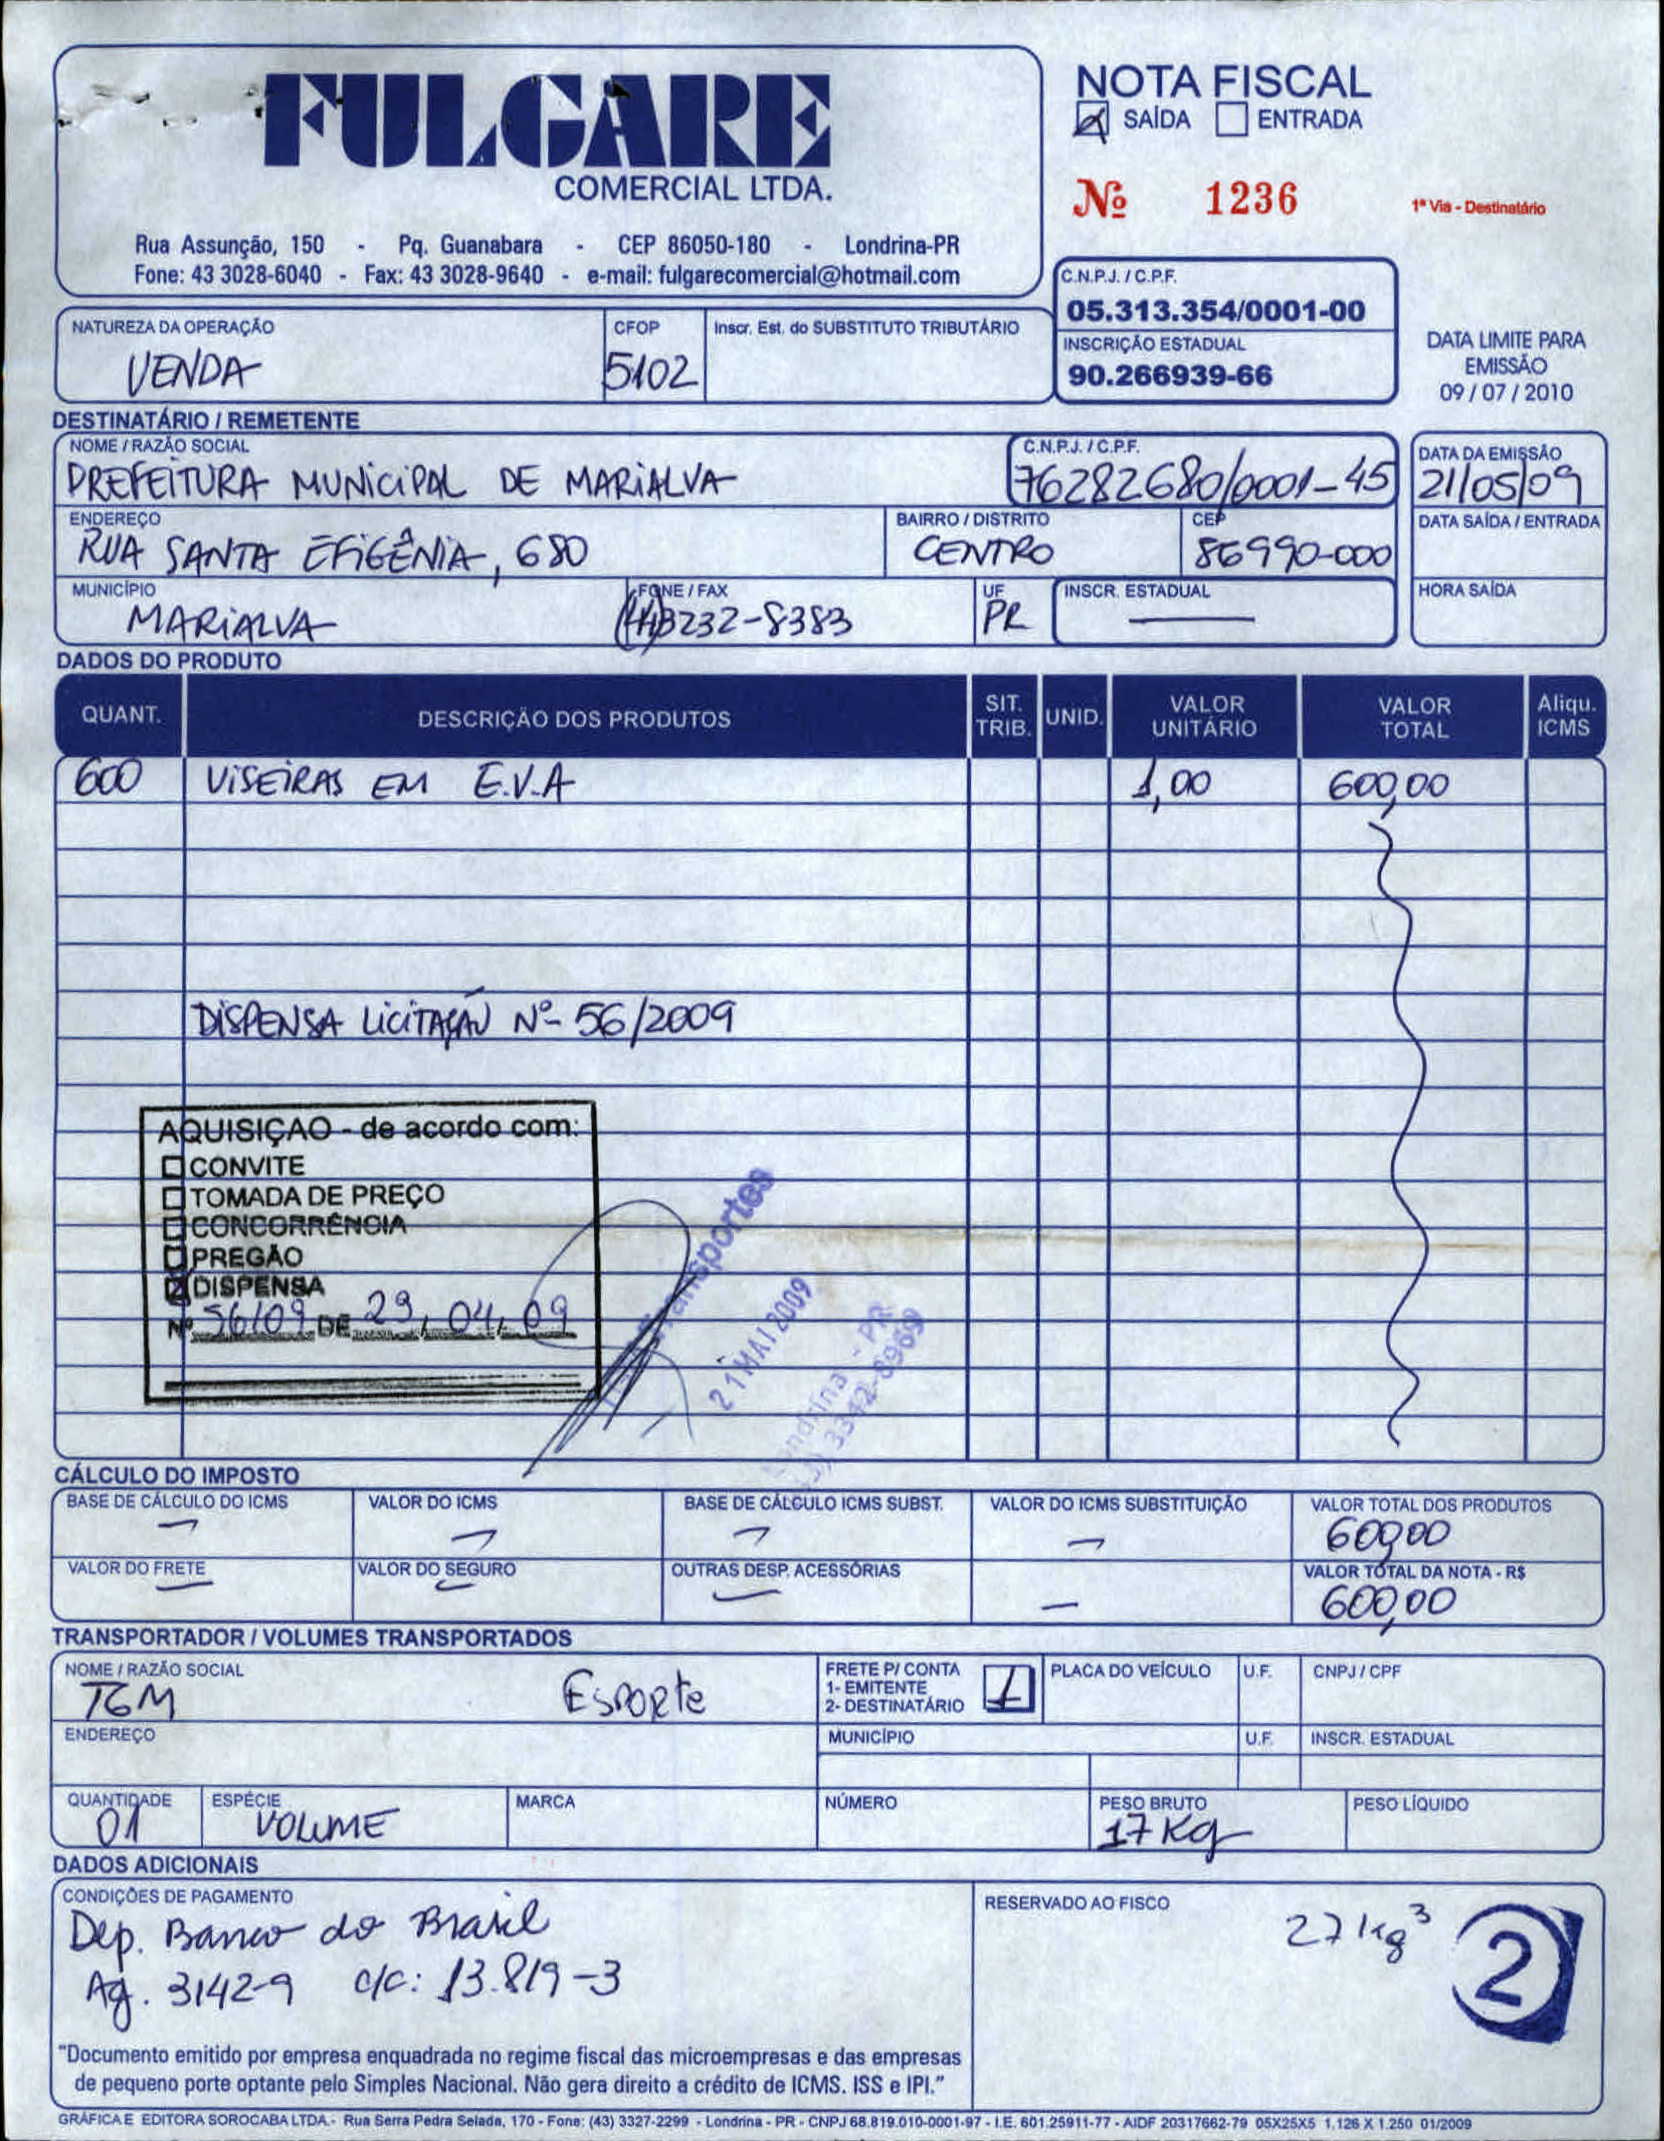 FULGARE
COMERCIAL LTDA.
Rua Assunção, 150 - Pq. Guanabara - CEP 86050-180 - Londrina-PR
Fone: 43 3028-6040 - Fax: 43 3028-9640 - e-mail: fulgarecomercial@hotmail.com
NOTA FISCAL
SAÍDA ENTRADA
Nº 1236 1ª Via - Destinatário
C.N.P.J. / C.P.F.
05.313.354/0001-00
INSCRIÇÃO ESTADUAL
90.266939-66
DATA LIMITE PARA
EMISSÃO
09 / 07 / 2010
NATUREZA DA OPERAÇÃO CFOP Inscr. Est. do SUBSTITUTO TRIBUTÁRIO
VENDA 5102
DESTINATÁRIO / REMETENTE
NOME / RAZÃO SOCIAL C.N.P.J. / C.P.F. DATA DA EMISSÃO
PREFEITURA MUNICIPAL DE MARIALVA 76282680/0001-45 21/05/09
ENDEREÇO BAIRRO / DISTRITO CEP DATA SAÍDA / ENTRADA
RUA SANTA EFIGÊNIA, 680 CENTRO 86990-000
MUNICÍPIO FONE / FAX UF INSCR. ESTADUAL HORA SAÍDA
MARIALVA (44)3232-8383 PR
DADOS DO PRODUTO
QUANT. DESCRIÇÃO DOS PRODUTOS SIT. TRIB. UNID. VALOR UNITÁRIO VALOR TOTAL Aliqu. ICMS
600 VISEIRAS EM E.V.A 1,00 600,00
DISPENSA LICITAÇÃO Nº 56/2009
AQUISIÇAO - de acordo com:
CONVITE
TOMADA DE PREÇO
CONCORRÊNCIA
PREGÃO
DISPENSA
Nº 56/09 DE 29, 04, 09
Transportes
21 MAI 2009
Londrina - PR
3342-8969
CÁLCULO DO IMPOSTO
BASE DE CÁLCULO DO ICMS VALOR DO ICMS BASE DE CÁLCULO ICMS SUBST. VALOR DO ICMS SUBSTITUIÇÃO VALOR TOTAL DOS PRODUTOS
600,00
VALOR DO FRETE VALOR DO SEGURO OUTRAS DESP. ACESSÓRIAS VALOR TOTAL DA NOTA - R$
600,00
TRANSPORTADOR / VOLUMES TRANSPORTADOS
NOME / RAZÃO SOCIAL FRETE P/ CONTA PLACA DO VEÍCULO U.F. CNPJ / CPF
1- EMITENTE
2- DESTINATÁRIO
TGM Esporte 1
ENDEREÇO MUNICÍPIO U.F. INSCR. ESTADUAL
QUANTIDADE ESPÉCIE MARCA NÚMERO PESO BRUTO PESO LÍQUIDO
01 VOLUME 17 Kg
DADOS ADICIONAIS
CONDIÇÕES DE PAGAMENTO RESERVADO AO FISCO
Dep. Banco do Brasil 27 kg³ 2
Ag. 3142-9 c/c: 13.819-3
"Documento emitido por empresa enquadrada no regime fiscal das microempresas e das empresas
de pequeno porte optante pelo Simples Nacional. Não gera direito a crédito de ICMS. ISS e IPI."
GRÁFICA E EDITORA SOROCABA LTDA.- Rua Serra Pedra Selada, 170 - Fone: (43) 3327-2299 - Londrina - PR - CNPJ 68.819.010-0001-97 - I.E. 601.25911-77 - AIDF 20317662-79 05X25X5 1.126 X 1.250 01/2009